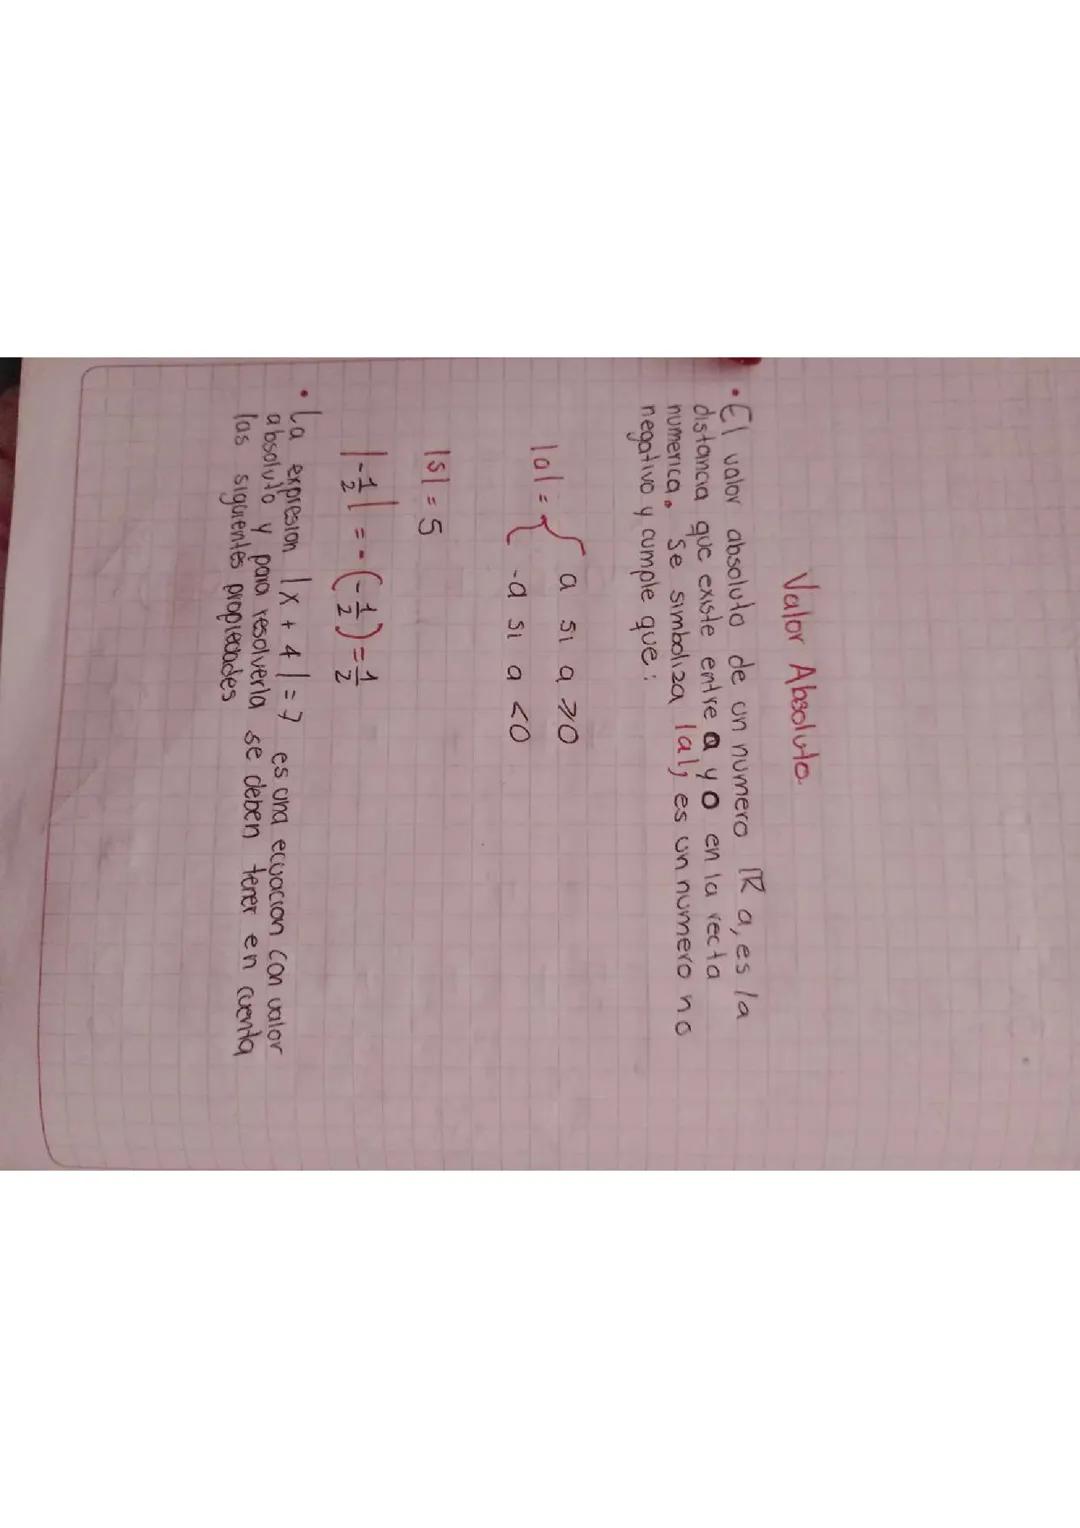 Valor Absoluto
• El valor absoluto de un numero ℝ a, es la
distancia que existe entre a y 0 en la recta
numerica. Se simboliza |a|, es un numero no
negativo y cumple que:
|a| = { a si a ≥0
-a si a <0
|5| = 5
|-1/2| = -(-1/2) = 1/2
• La expresion |x + 4| = 7 es una ecuacion con valor
absoluto y para resolverla se deben tener en cuenta
las siguientes propiedades